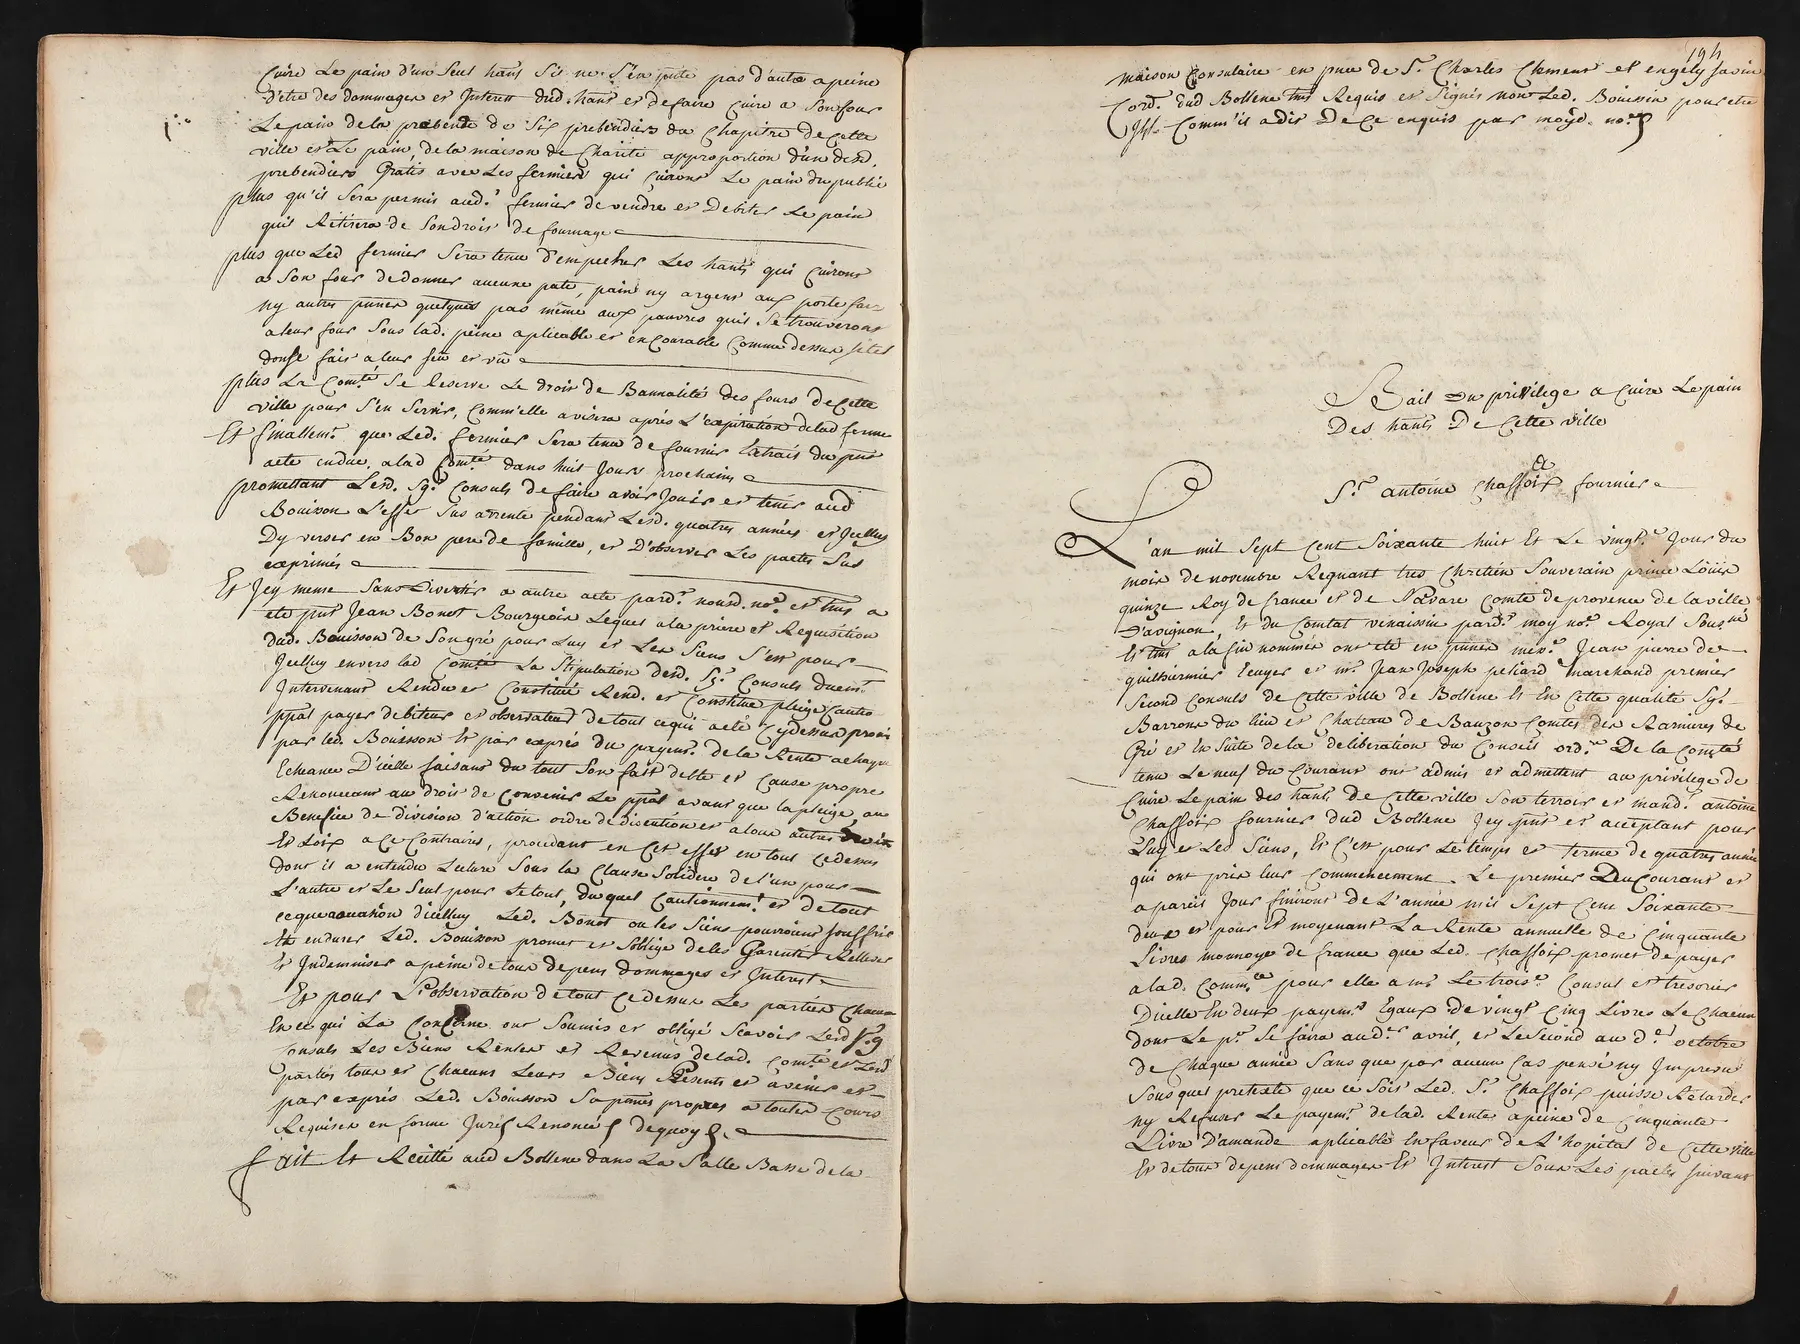 Cuire Le pain d'un Seul hant Sil ne s'en porte pas d'autre apeine
D'etre des dommages et Interets dud. hant et de faire Cuire a Son four
Le pain de la prebende de Six prebendiers du Chapitre de Cette
ville et Le pain de la maison de Charité approportion d'un desd.
prebendiers Gratis avec Les fermiers qui Cuirons Le pain du public
plus qu'il Sera permis aud.t fermier de vendre et Debiter Le pain
quil Rétirera de Son droit de fournage
plus que Led fermier Sera tenu d'empecher Les hants qui Cuirons
a Son four de donner aucune pate, pain ny argent aux porte faix
ny autres pnnes quelques pas même aux pauvres quil Se trouverons
a leur four Sous lad. peine aplicable et encourable Comme dessus
fait a leur sçu et vû
plus La Com.té Se Reserve Le droit de Bannalité des fours de Cette
ville pour S'en Servir, Comm'elle avisera aprés L'expiration de lad ferme
Et finallem.t que Led. fermier Sera tenu de fournir Extrait du pnt
acte endue. a lad Com.té dans huit Jours prochains
promettant Lesd. Sg.rs Consuls de faire avoir Jouir et tenir aud
Bouisson L'effet Sus arrenté pendant Lesd. quatres années et Jcelluy
Dy verser en Bon pere de famille, et D'observer Les pactes Sus
exprimés
Et Jcy meme Sans Divertir a autre acte pard.t nousd. no.re et tms a
eté pnt Jean Bonot Bourgeois Lequel a la priere et Requisition
dud. Bouisson de Son gré pour Luy et Les Siens S'est pour
Jcelluy envers lad Comté La Stipulation desd. Sg.rs Consuls
Intervenant Rendu et Constitué Rend. et Constitue pleige Cautio
ppal payer debiteur et observateur de tout ce qui a eté Cydessus promis
par led. Bouisson Et par exprés du payem.t de la Rente a chaque
Echeance D'icelle faisant du tout Son fait debte et Cause propre
Renonceant au droit de Convenir Le ppal avant que la pleige, au
Benefice de division d'action ordre de discution et a tous autres droits
Et Loix a Ce Contraires, procedant en Cet effet en tout Cedessus
dont il a entendu Lecture Sous la Clause Solidere de L'un pour
L'autre et Le Seul pour Le tout, duquel Cautionnem.t et De tout
ce que a ocation dicelluy Led. Bonot ou les Siens pourroient Souffrir
Et endurer Led. Bouisson promet et S'oblige de les Garentir Rellever
Et Indemniser a peine de tous depens Dommages et Interest
Et pour L'observation de tout Cedessus Les parties Chacune
En ce qui La Concerne ont Soumis et obligé Scavoir Lesd S.rs
Consuls Les Biens Rentes et Revenus de lad. Comté et Lesd
parties tous et Chacuns Leurs Biens Présents et avenir et
par exprés Led. Bouisson Sa pnnes propres a toutes Cours
Requises en forme Juré Renoncé dequoy &.
Fait Et Récitté aud Bollene dans La Salle Basse de la
194
maison Consulaire en pnce de S.r Charles Clement et engely Savin
Cord. dud Bollene tms Requis et Signés non Led. Bouisson pour etre
Jll. Comm'il a dit De Ce enquis par moyd. no.re
Bail du privilege a Cuire Le pain
Des hants De Cette ville
a
S.r antoine Chaffoix fournier
L'an mil Sept Cent Soixante huit Et Le vingt.e Jour du
mois de novembre Regnant tres Chretien Souverain prince Louis
quinze Roy de france et de Navare Comte de provence de la ville
D'avignon, Et du Comtat venaissin pard.t moy no.re Royal Sousné
Et tms a la fin nommés ont eté en pnnes mre. Jean pierre de
guilhermier Ecuyer et m.r Jean Joseph peliard marchand premier
Second Consuls de Cette ville de Bollene Et En Cette qualité Sg.rs
Barrons du lieu et Chateau de Bauzon Comtes des Ramieres de
Gré et En Suite de la déliberation du Conseil ord.re De la Comté
tenu Le neuf du Courant ont admis et admettent au privilege de
Cuire Le pain des hants De Cette ville Son terroir et mand.t antoine
Chaffoix fournier dud Bollene Jcy pnt et acceptant pour
Luy et Les Siens, Et C'est pour Le temps et terme de quatres année
qui ont pris leur Commencement Le premier Du Courant et
a pareil Jour finiront de L'année mil Sept Cent Soixante
deux et pour Et moyenant La Rente annuelle de Cinquante
Livres monnoye de france que Led. Chaffoix promet de payer
a lad. Comm.té pour elle a mr Le trois.e Consul et tresorier
D'icelle En deux payem.ts Egaux de vingt Cinq Livres Le Chacun
dont Le p.r Se faira aud. avril, et Le Second au d.t octobre
de Chaque année Sans que par aucun Cas pensé ny Impreveu
Sous quel pretexte que ce Soit Led. S.r Chaffoix puisse Retarder
ny Refuser Le payem.t de lad. Rente a peine de Cinquante
Livre D'amande aplicable En faveur de L'hopital de Cette ville
Et de tous depens dommages Et Interest Sous Les pactes Suivant